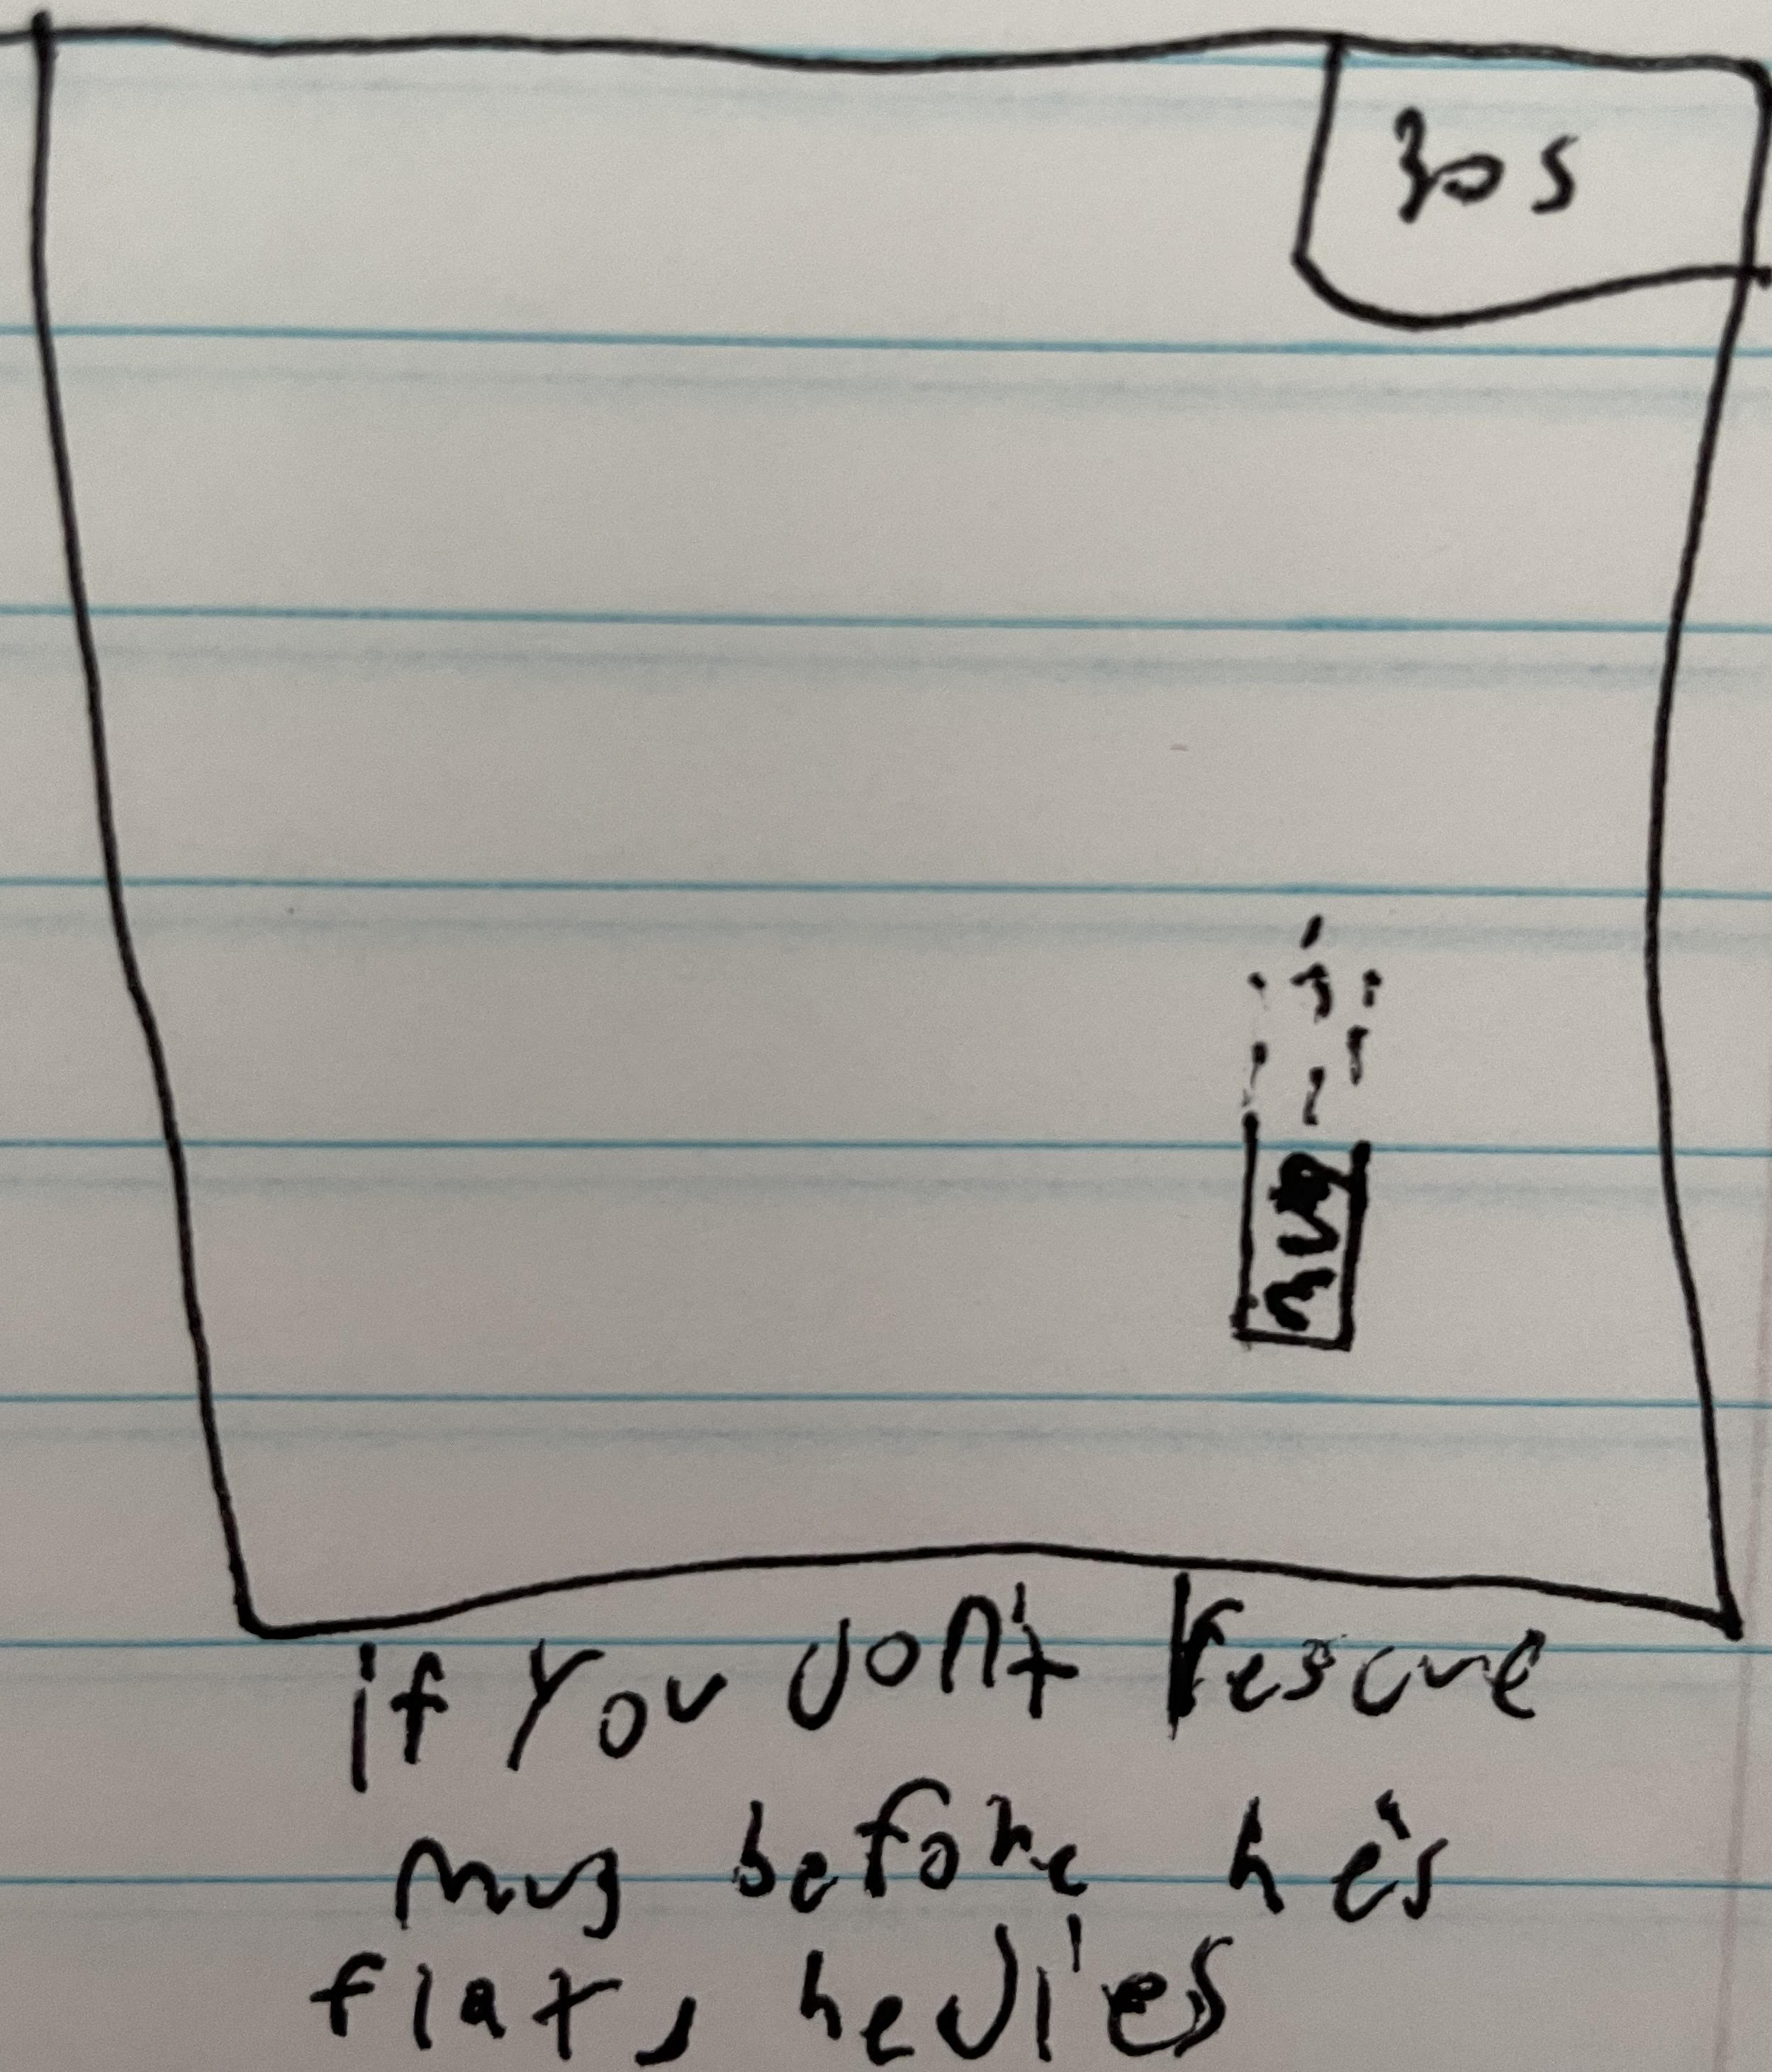 30s
mug
if you don't rescue
mug before he's
flat, he dies